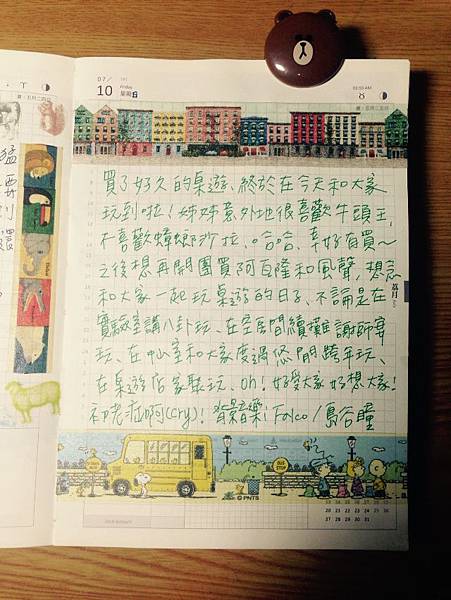 07/
10
Friday
星期五
買了好久的桌遊、終於在今天和大家
玩到啦!姊姊意外地很喜歡牛頭王,
不喜歡蟑螂沙拉。哈哈、幸好有買~
之後想再開團買阿瓦隆和風聲,想念
和大家一起玩桌遊的日子、不論是在
實驗室講八卦玩、在包間續攤謝師宴
玩、在仙室和大家度過悠閒跨年玩、
在桌遊店家聚玩、Oh!好愛大家好想大家!
初老症啊(cry)!背景音樂:Falco/島谷瞳
© PNTS
20 21 22 23 24 25 26
27 28 29 30 31